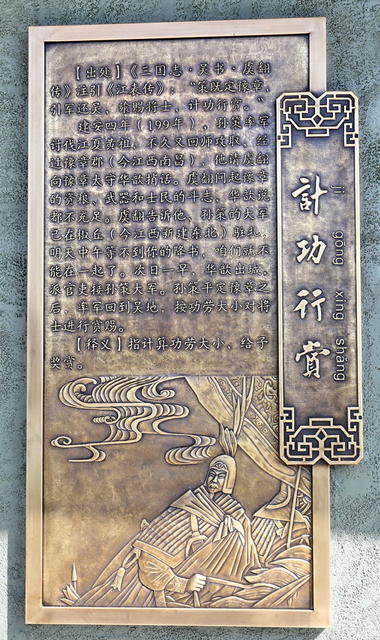 【出处】《三国志·吴书·虞翻
传》注引《江表传》：“策既定豫章，
引军还吴，飨赐将士，计功行赏。”
建安四年（199年），孙策率军
讨伐江夏黄祖，不久又回师攻取，经
过豫章郡（今江西南昌），他请虞翻
向豫章太守华歆捎话。虞翻问起豫章
的资粮、武器和士民的斗志，华歆说
都不充足。虞翻告诉他，孙策的大军
已在椒丘（今江西新建东北）驻扎，
明天中午等不到你的降书，咱们就不
能在一起了。次日一早，华歆出城，
派官吏接孙策大军。孙策平定豫章之
后，率军回到吴地，按功劳大小对将
士进行赏赐。
【释义】指计算功劳大小，给予
奖赏。
計功行赏
jì gōng xíng shǎng